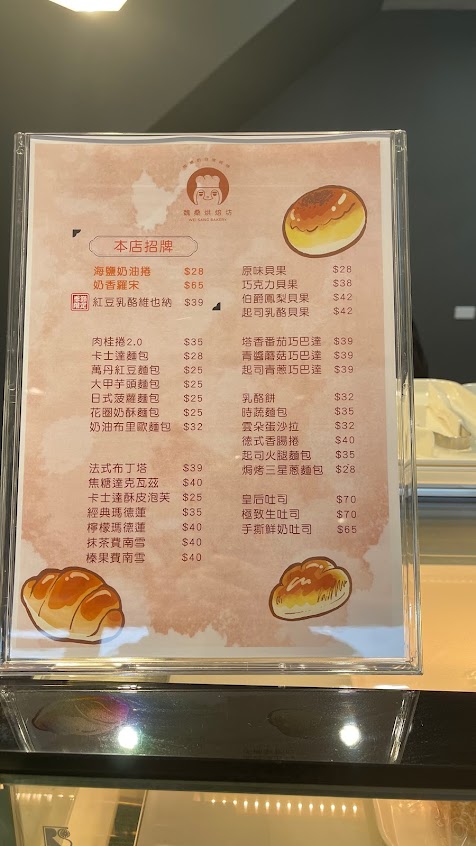 WEI SANG BAKERY
本店招牌
海鹽奶油捲 $28
奶香羅宋 $65
紅豆乳酪維也納 $39
肉桂捲2.0 $35
卡士達麵包 $28
萬丹紅豆麵包 $25
大甲芋頭麵包 $25
日式菠蘿麵包 $25
花圈奶酥麵包 $25
奶油布里歐麵包 $32
法式布丁塔 $39
焦糖達克瓦茲 $40
卡士達酥皮泡芙 $25
經典瑪德蓮 $35
檸檬瑪德蓮 $40
抹茶費南雪 $40
榛果費南雪 $40
原味貝果 $28
巧克力貝果 $38
伯爵鳳梨貝果 $42
起司乳酪貝果 $42
塔香番茄巧巴達 $39
青醬蘑菇巧巴達 $39
起司青蔥巧巴達 $39
乳酪餅 $32
時蔬麵包 $35
雲朵蛋沙拉 $32
德式香腸捲 $40
起司火腿麵包 $35
焗烤三星蔥麵包 $28
皇后吐司 $70
極致生吐司 $70
手撕鮮奶吐司 $65